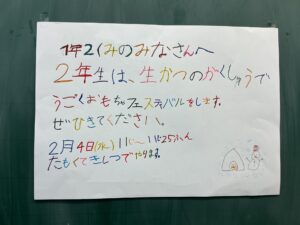 1年2くみのみなさんへ
2年生は、生かつのがくしゅうで
うごくおもちゃフェスティバルをします。
ぜひきてください。
2月4日(水)11じ～11じ25ふん
たもくてきしつでやります。